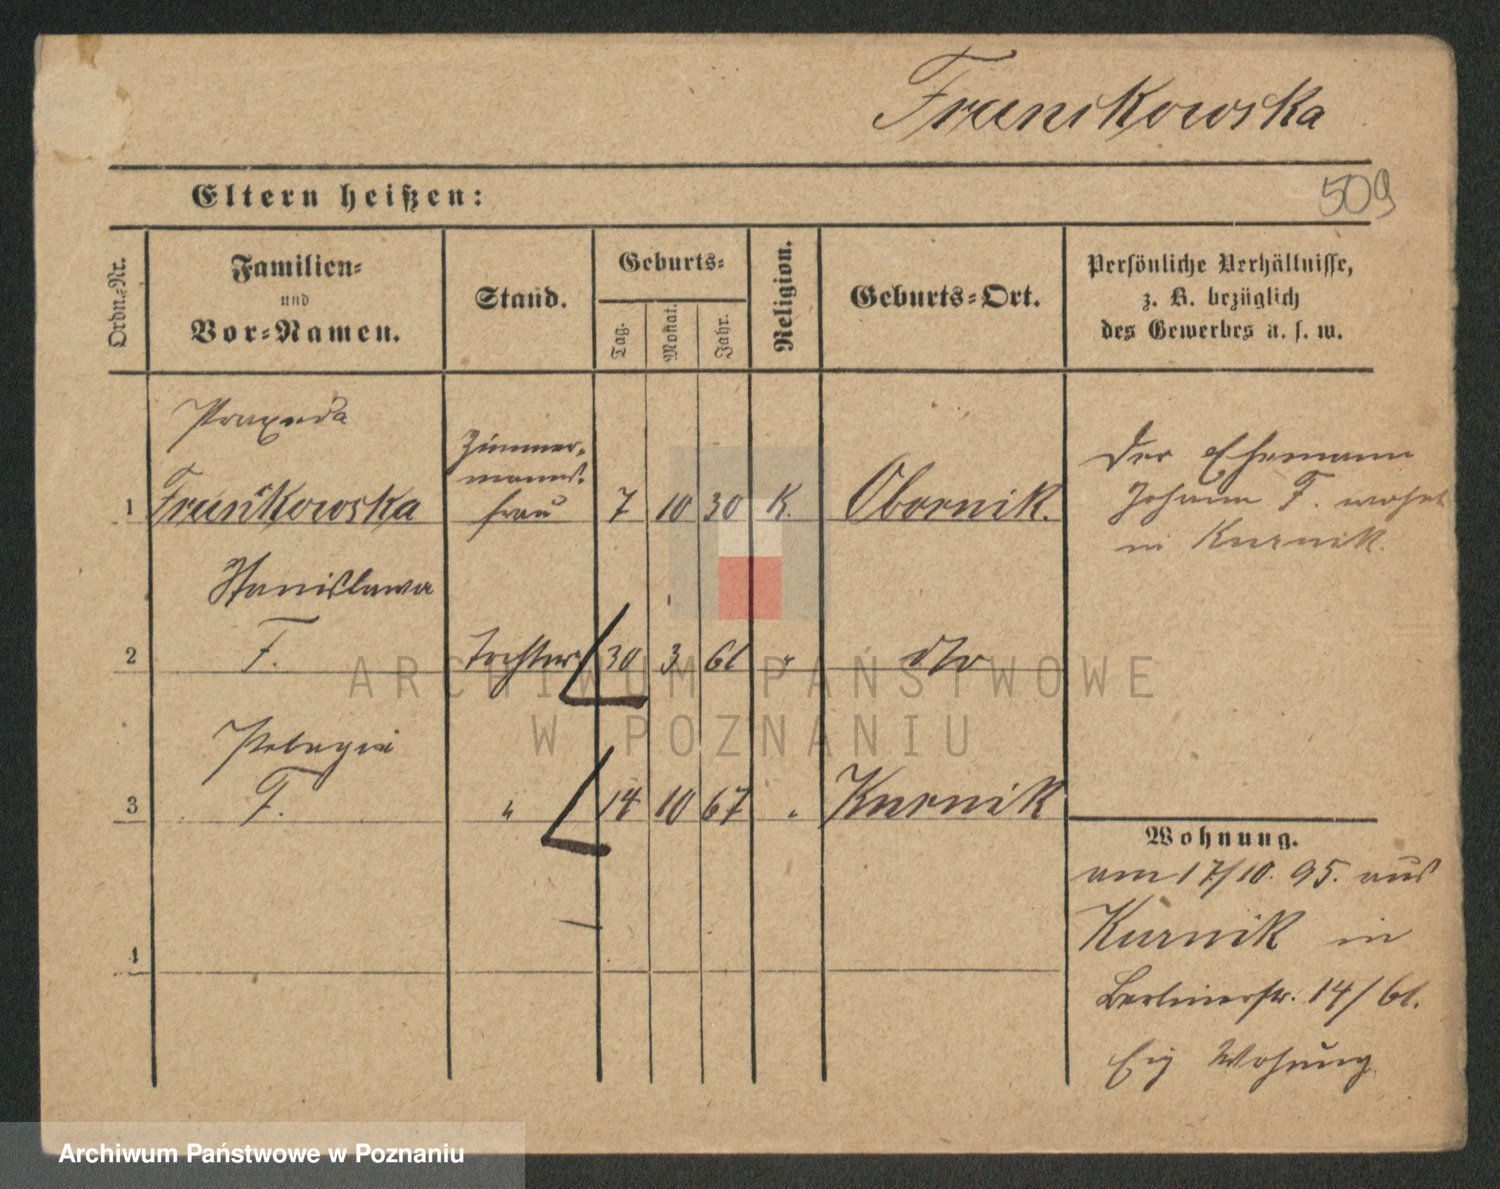 Franikowska
Eltern heißen:
509
Ordn.-Nr.
Familien-
und
Vor-Namen.
Stand.
Geburts-
Tag.
Monat.
Jahr.
Religion.
Geburts-Ort.
Persönliche Verhältnisse,
z. B. bezüglich
des Gewerbes u. s. w.
Praxeda
1 Franikowska
Zimmer-
manns-
frau
7 10 30 K. Obornik.
Der Ehemann
Johann F. wohnt
in Kurnik.
Stanislawa
2 F. Tochter 30 3 61 " dto
Pelagia
3 F. " 14 10 67 " Kurnik
4
Wohnung.
am 17/10. 95. aus
Kurnik in
Berlinerstr. 14/61.
Eig Wohnung
ARCHIWUM PAŃSTWOWE
W POZNANIU
Archiwum Państwowe w Poznaniu